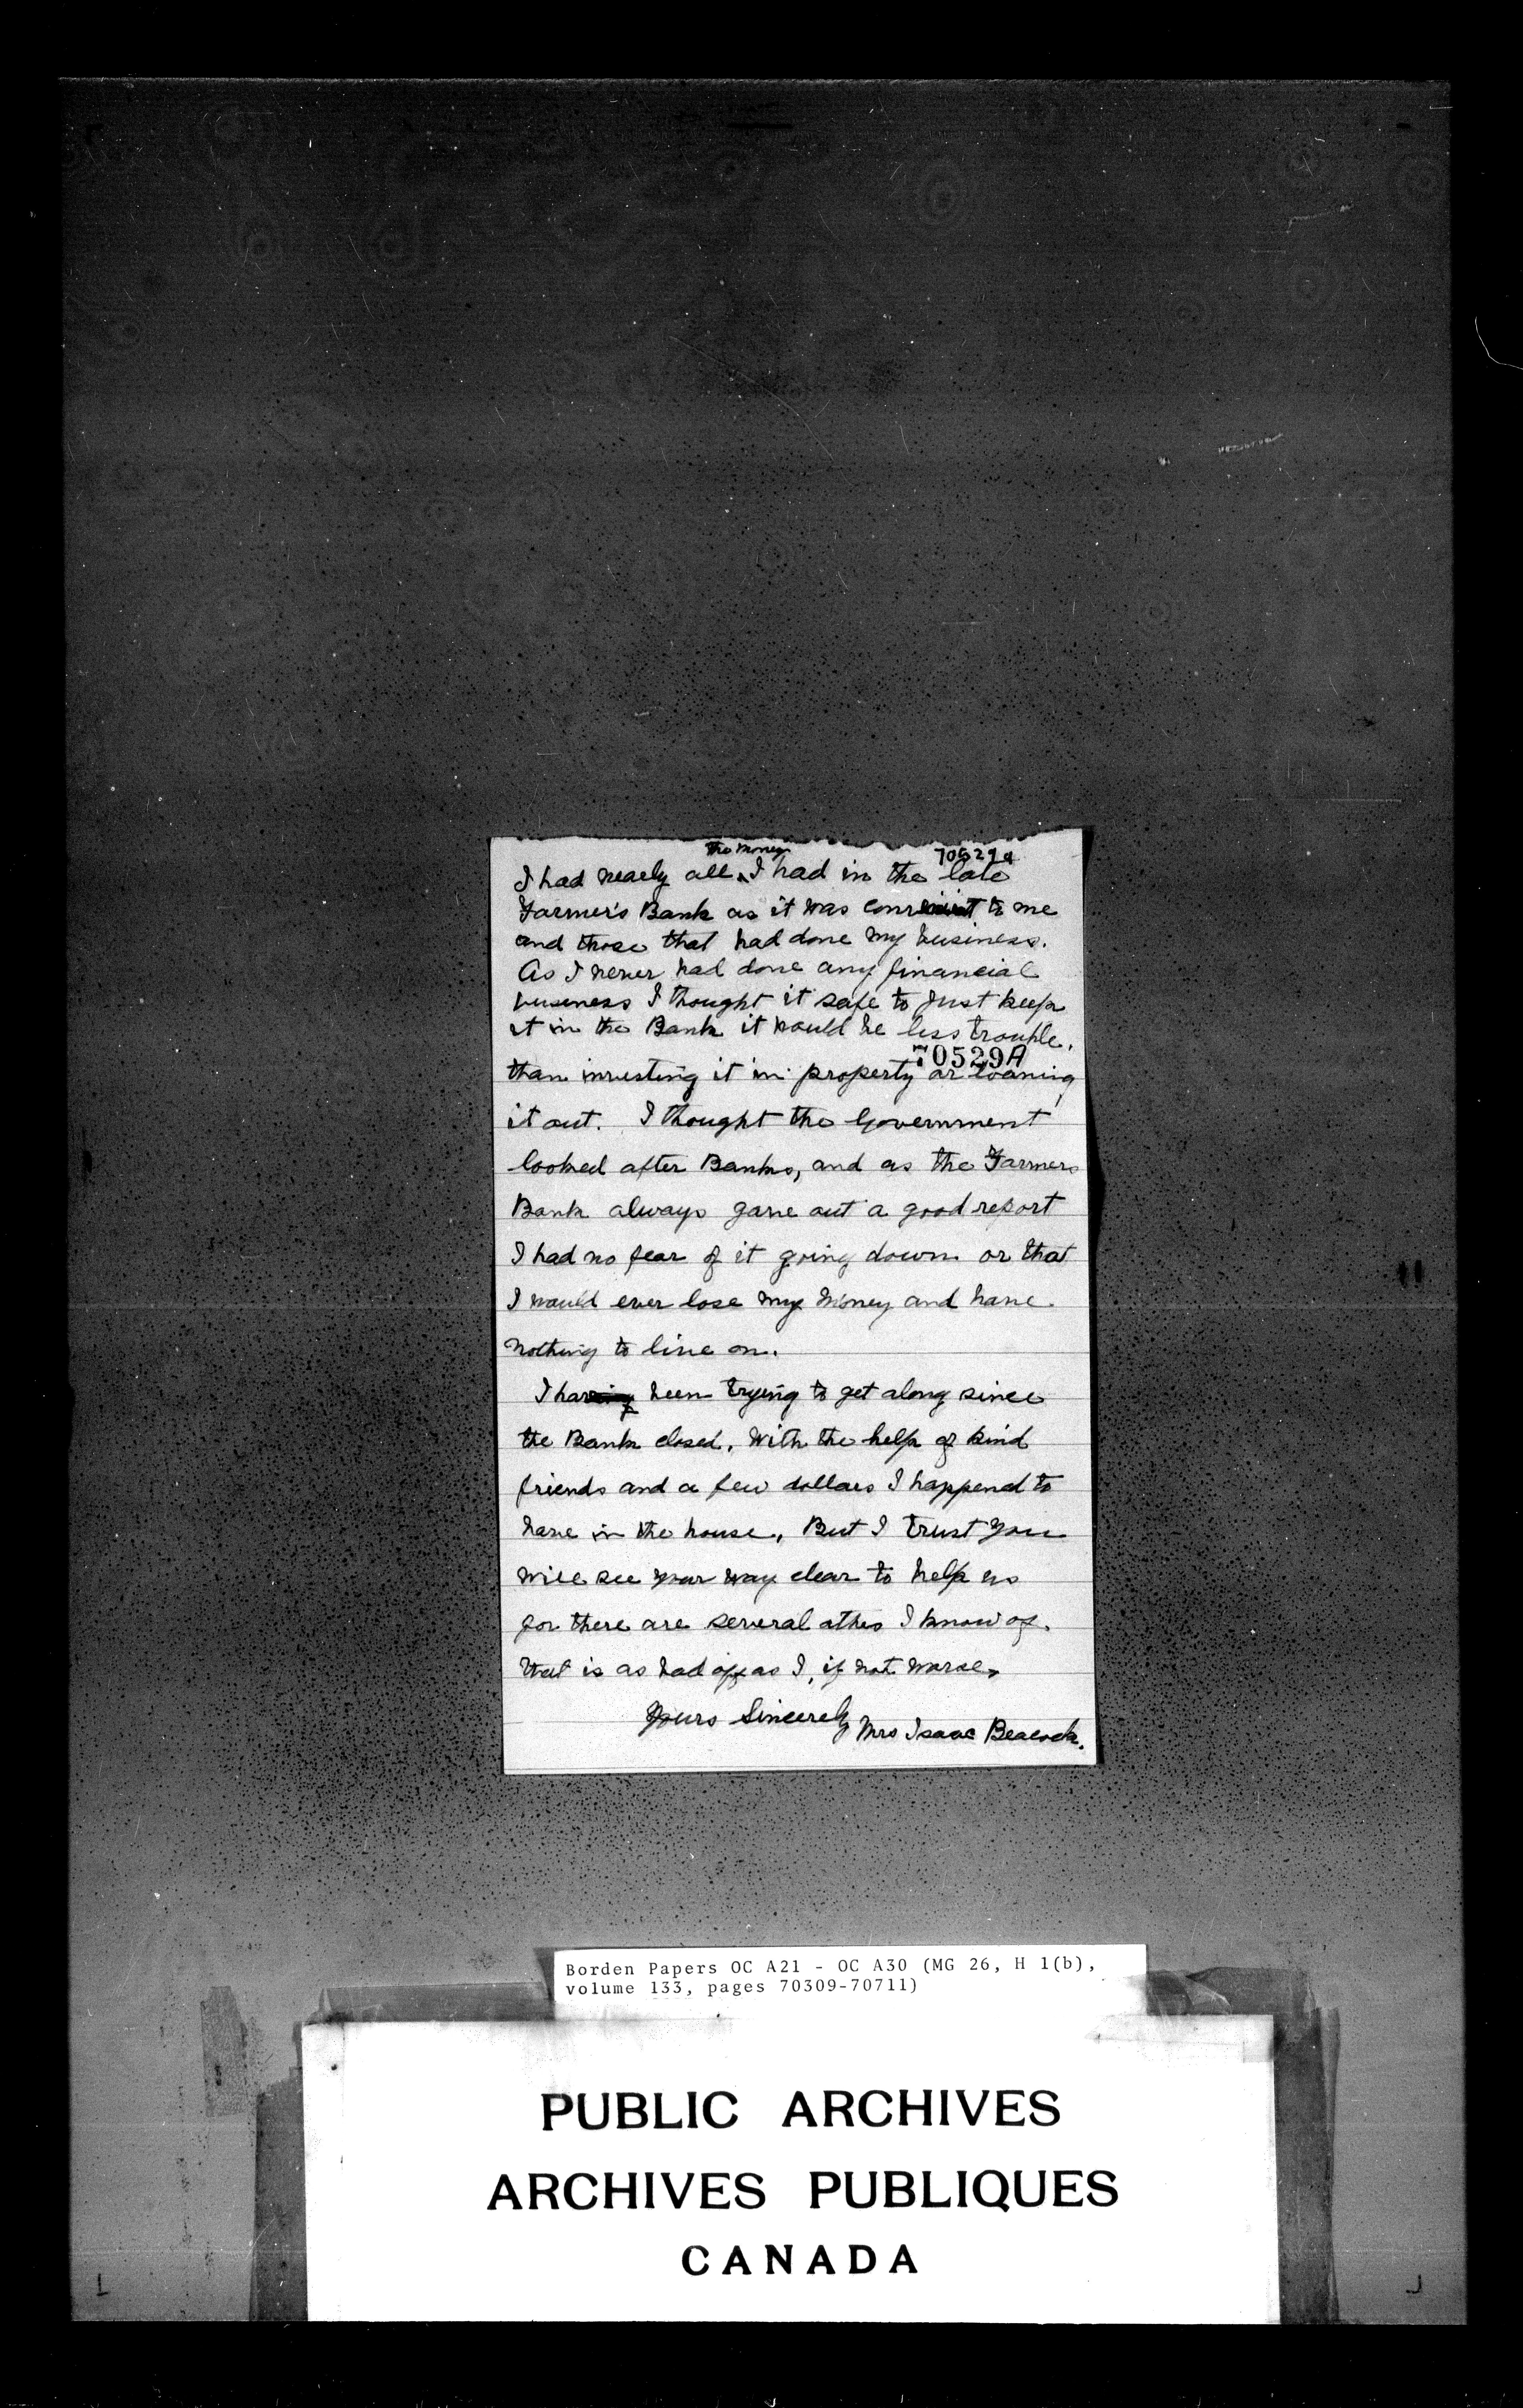 the money
70529a
I had nearly all ‸ I had in the late
Farmer's Bank as it was to me
and those that had done my business.
As I never had done any financial
business I thought it safe to just keep
it in the Bank it would be less trouble.
70529A
than investing it in property or loaning
it out. I thought the Government
looked after Banks, and as the Farmers
Bank always gave out a good report
I had no fear of it going down or that
I would ever lose my money and have
nothing to live on.
I have been trying to get along since
the Bank closed. With the help of kind
friends and a few dollars I happend to
have in the house. But I trust you
will see your way clear to help us
for there are several othes I know of.
that is as bad off as I, if not worse.
Yours Sincerely Mrs Isaac Beacock.
Borden Papers OC A21 - OC A30 (MG 26, H 1(b),
volume 133, pages 70309-70711)
PUBLIC ARCHIVES
ARCHIVES PUBLIQUES
CANADA